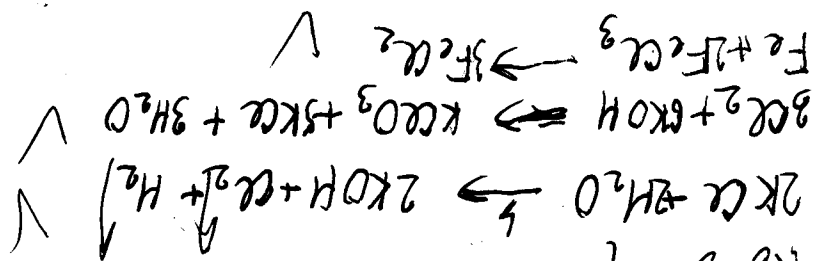 2KCl + 2H₂O →^{ϟ} 2KOH + Cl₂↑ + H₂↑
3Cl₂ + 6KOH → KClO₃ + 5KCl + 3H₂O
Fe + 2FeCl₃ → 3FeCl₂